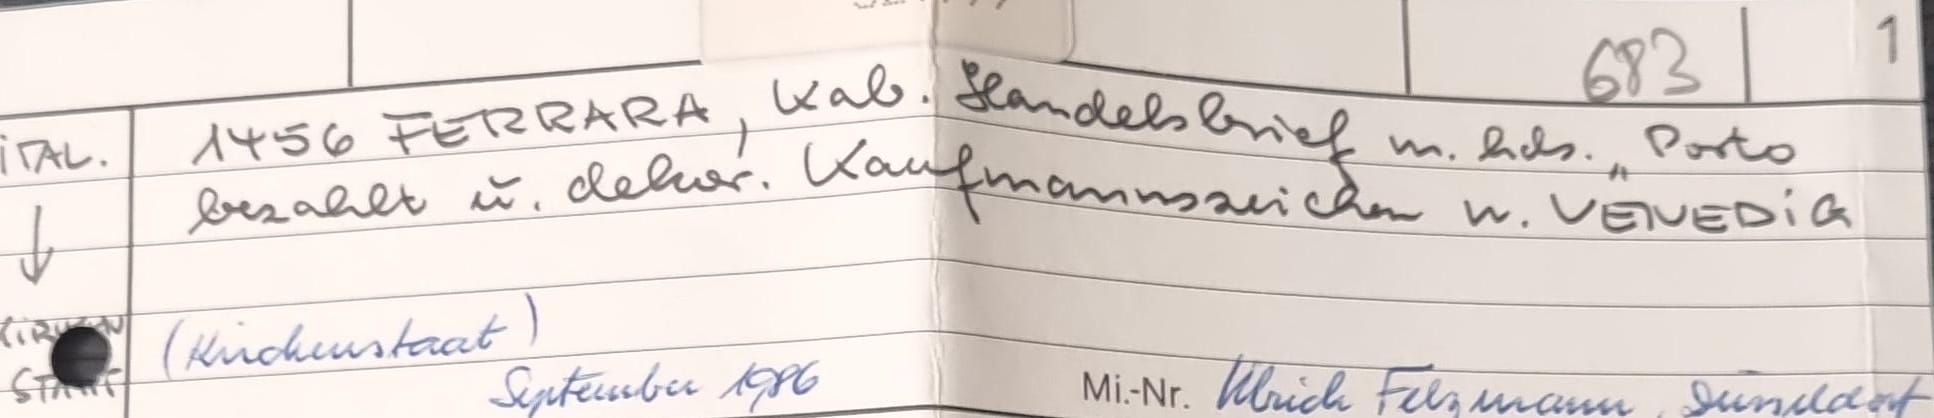 683 1
ITAL. 1456 FERRARA, Kab. Handelsbrief m. hds. „Porto
bezahlt u. dekor. Kaufmannszeichen n. VENEDIG
(Kirchenstaat)
KIRCHEN
STAAT
September 1986 Mi.-Nr. Ulrich Felzmann, Düsseldorf